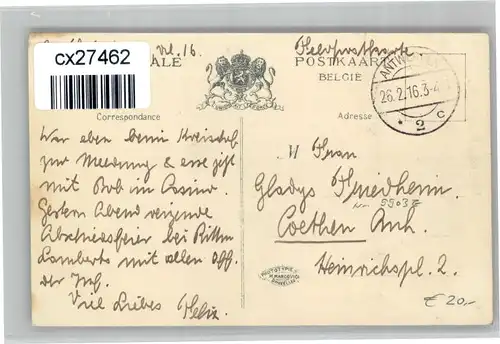 cx27462
ALE
16.
Feldpostkarte
POSTKAART
BELGIË
ANTWERPEN
26.2.16.3-4
* 2 c
Correspondance
Adresse
War eben beim Kreischef
zur Meldung & esse jetzt
mit Bob im Casino.
Gestern Abend reizende
Abschiedsfeier bei Rittm.
Lamberts mit allen Off.
der Insp.
Viel Liebes Felix.
Frau
Gladys Friedheim.
Coethen Anh.
Heinrichspl. 2.
PHOTOTYPIE
MARCOVICI
BRUXELLES
€ 20,-